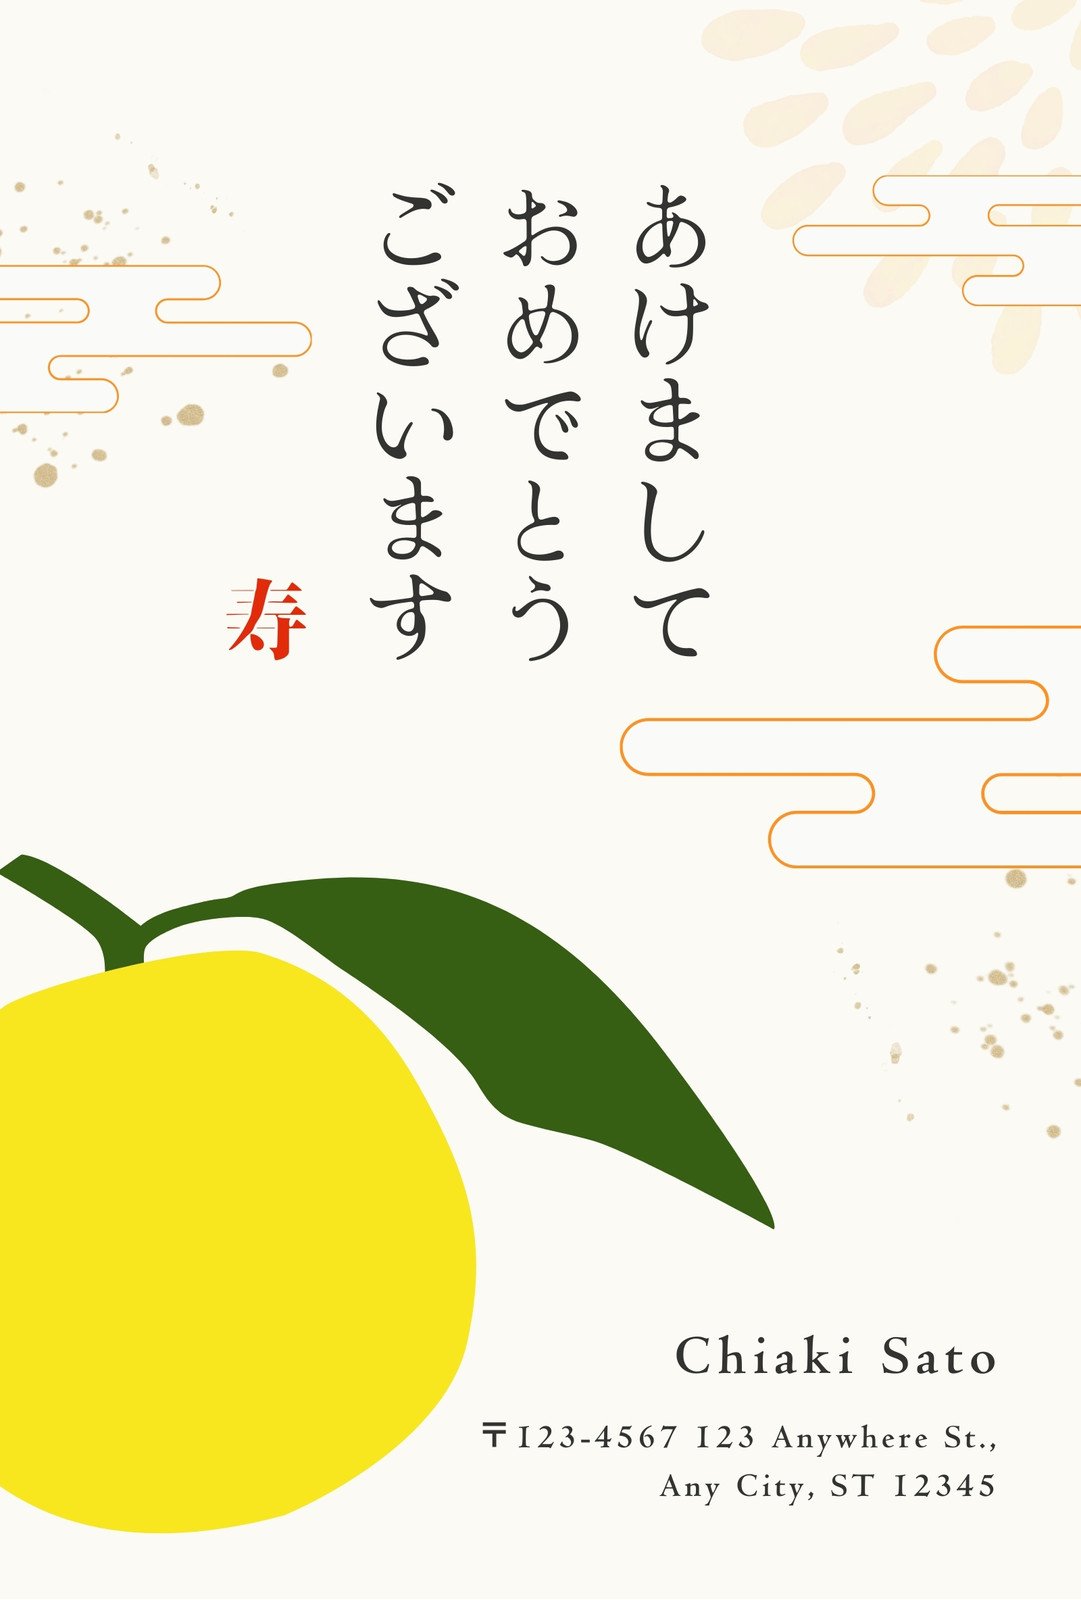 あけまして
おめでとう
ございます
寿
Chiaki Sato
〒123-4567 123 Anywhere St.,
Any City, ST 12345